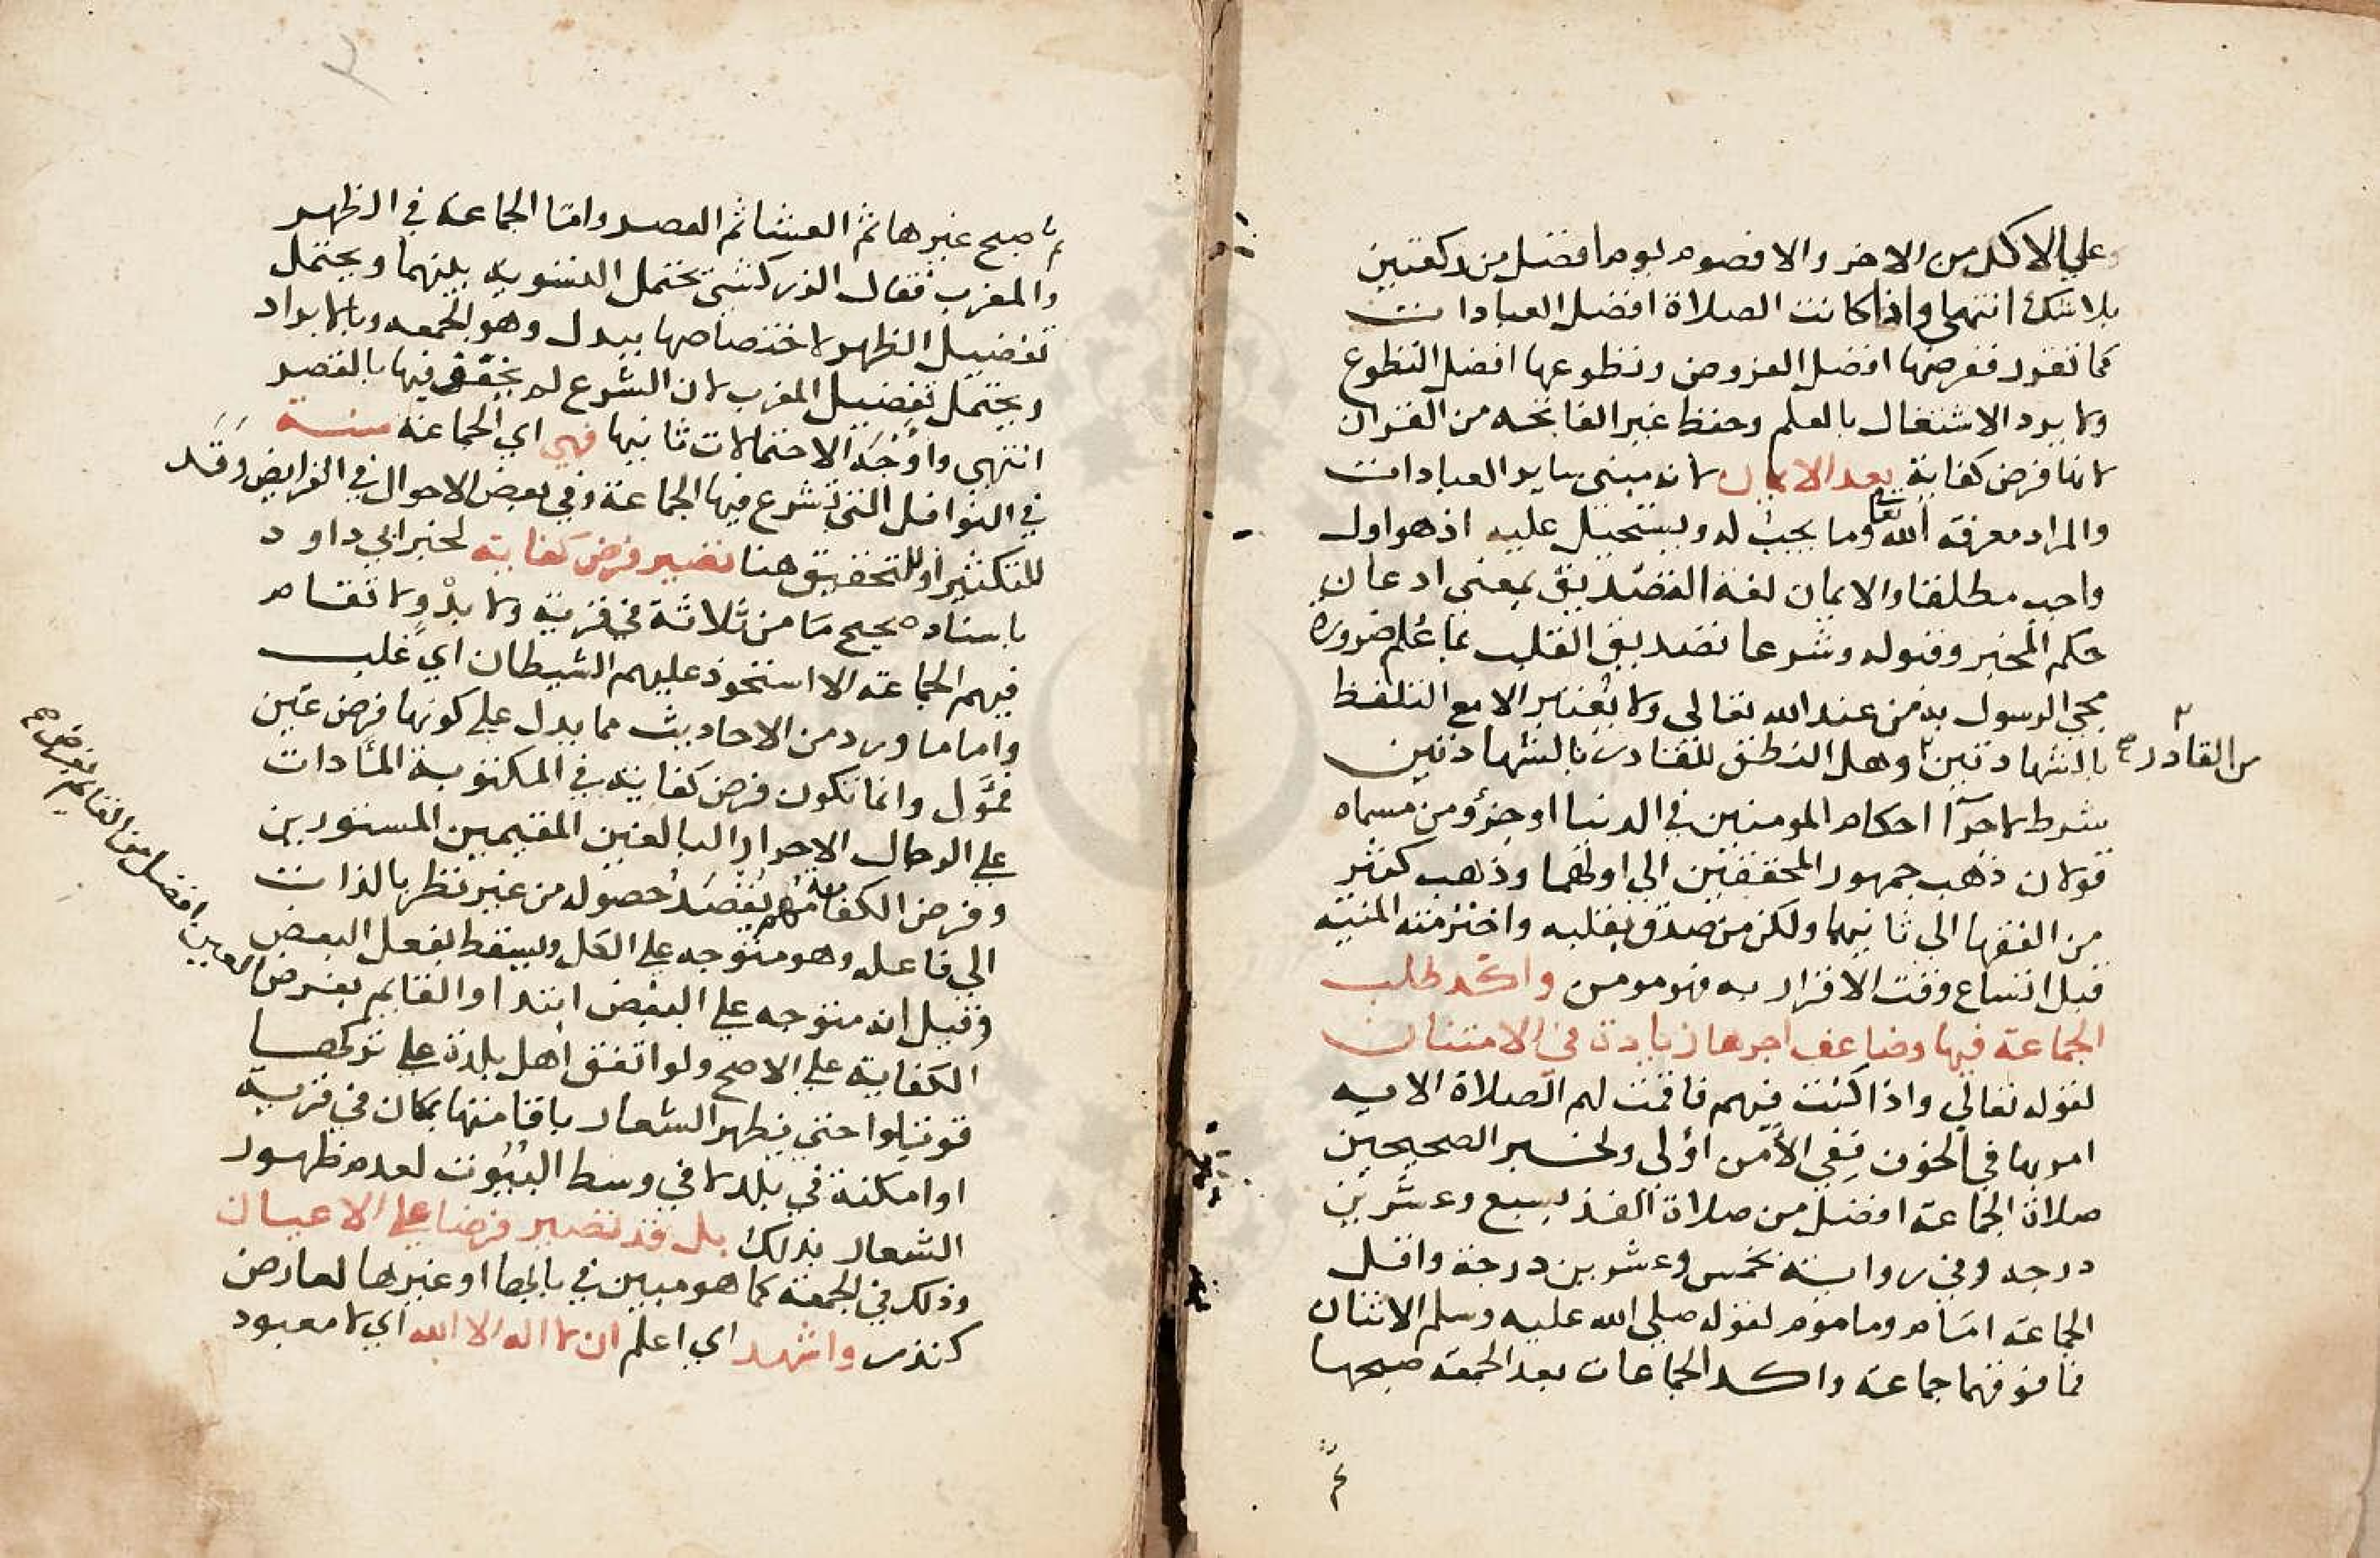 وعلي الاكل من الاخر والا فصوم يوم افضل من ركعتين
بلا شك انتهي واذا كانت الصلاة افضل العبادات
كما تقرر ففرضها افضل الفروض وتطوعها افضل التطوع
ولا يرد الاشتغال بالعلم وحفظ غير الفاتحه من القران
لانها فرض كفاية بعد الايمان لانه مبني ساير العبادات
والمراد معرفة الله تعالى وما يجب له ويستحيل عليه اذ هو اول
واجب مطلقا والايمان لغة التصديق بمعني اذعان
حكم المخبر وقبوله وشرعا تصديق القلب بما علم ضرورة
مجي الرسول به من عند الله تعالي ولا يعتبر الا مع التلفظ
بالشهادتين وهل النطق للقادر بالشهادتين
من القادر صح
شرط لاجرآ احكام المومنين في الدنيا او جزؤ من مسماه
قولان ذهب جمهور المحققين الي اولهما وذهب كثير
من الفقها الي ثانيهما ولكن من صدق بقلبه واخترمته المنية
قبل اتساع وقت الاقرار به فهو مومن واكد طلب
الجماعة فيها وضاعف اجرها زيادة في الامتنان
لقوله تعالي واذا كنت فيهم فاقمت لهم الصلاة الايه
امر بها في الخوف ففي الأمن اولي ولخبر الصحيحين
صلاة الجماعة افضل من صلاة الفذ بسبع وعشرين
درجه وفي رواية بخمس وعشرين درجة واقل
الجماعة امام وماموم لقوله صلي الله عليه وسلم الاثنان
فما فوقهما جماعة واكد الجماعات بعد الجمعة صبحها
ثم
ثم صبح غيرها ثم العشا ثم العصر واما الجماعة في الظهر
والمغرب فقال الزركشي يحتمل التسوية بينهما ويحتمل
تفضيل الظهر لاختصاصها ببدل وهو الجمعه وبالابراد
ويحتمل تفضيل المغرب لان الشرع لم يخفف فيها بالقصر
انتهي واوجه الاحتمالات ثانيها فهي اي الجماعة سنة
في النوافل التي تشرع فيها الجماعة وفي بعض الاحوال في الفرايض وقد
للتكثير او للتحقيق هنا تصير فرض كفاية لخبر ابي داود
باسناد صحيح ما من ثلاثة في قرية ولا بدو لا تقام
فيهم الجماعة الا استحوذ عليهم الشيطان اي غلب
واما ما ورد من الاحاديث مما يدل علي كونها فرض عين
فمؤل وانما تكون فرض كفاية في المكتوبة المأداة
علي الرجال الاحرار البالغين المقيمين المستورين
وفرض الكفاية مهم يقصد حصوله من غير نظر بالذات
الي فاعله وهو متوجه علي الكل ويسقط بفعل البعض
وقيل انه متوجه علي البعض ابتدا والقايم بفرض
العين افضل من القايم بفرض صح
الكفاية علي الاصح ولو اتفق اهل بلدة علي تركها
قوتلوا حتي يظهر الشعار باقامتها بمكان في قرية
او امكنة في بلد لا في وسط البيوت لعدم ظهور
الشعار بذلك بل قد تصير فرضا علي الاعيان
وذلك في الجمعة كما هو مبين في بابها او غيرها لعارض
كنذر واشهد اي اعلم ان لا اله الا الله اي لا معبود